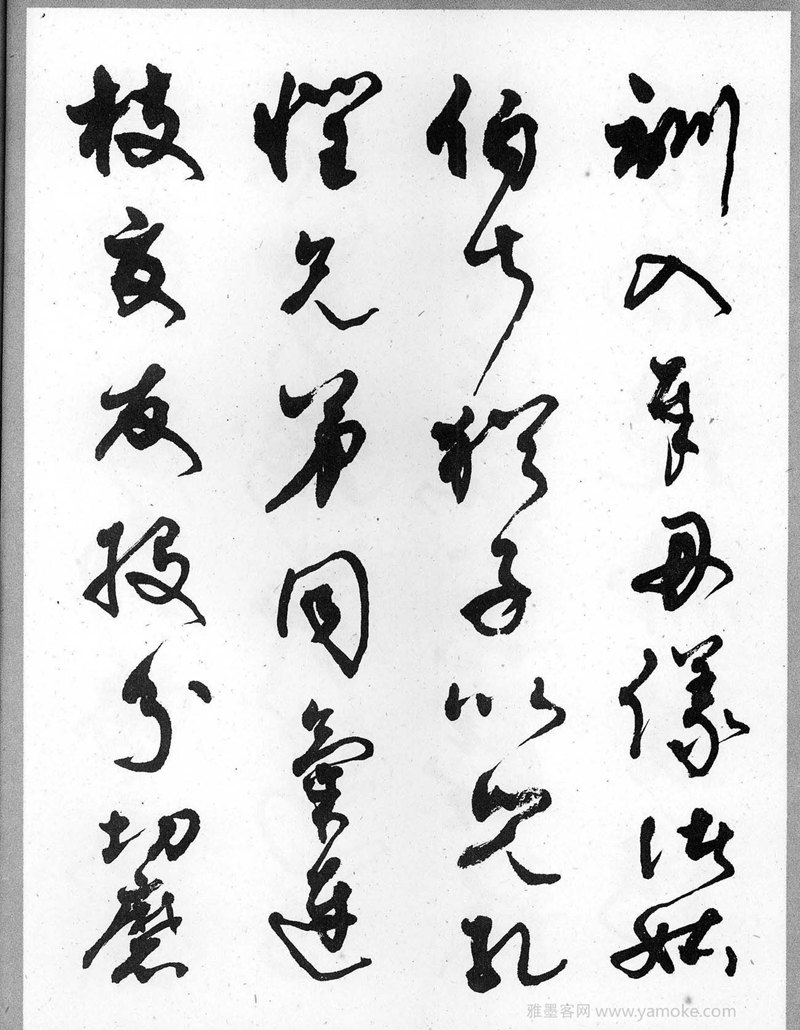 訓入奉母儀諸姑
伯叔猶子比兒孔
懷兄弟同氣連
枝交友投分切磨
雅墨客网 www.yamoke.com